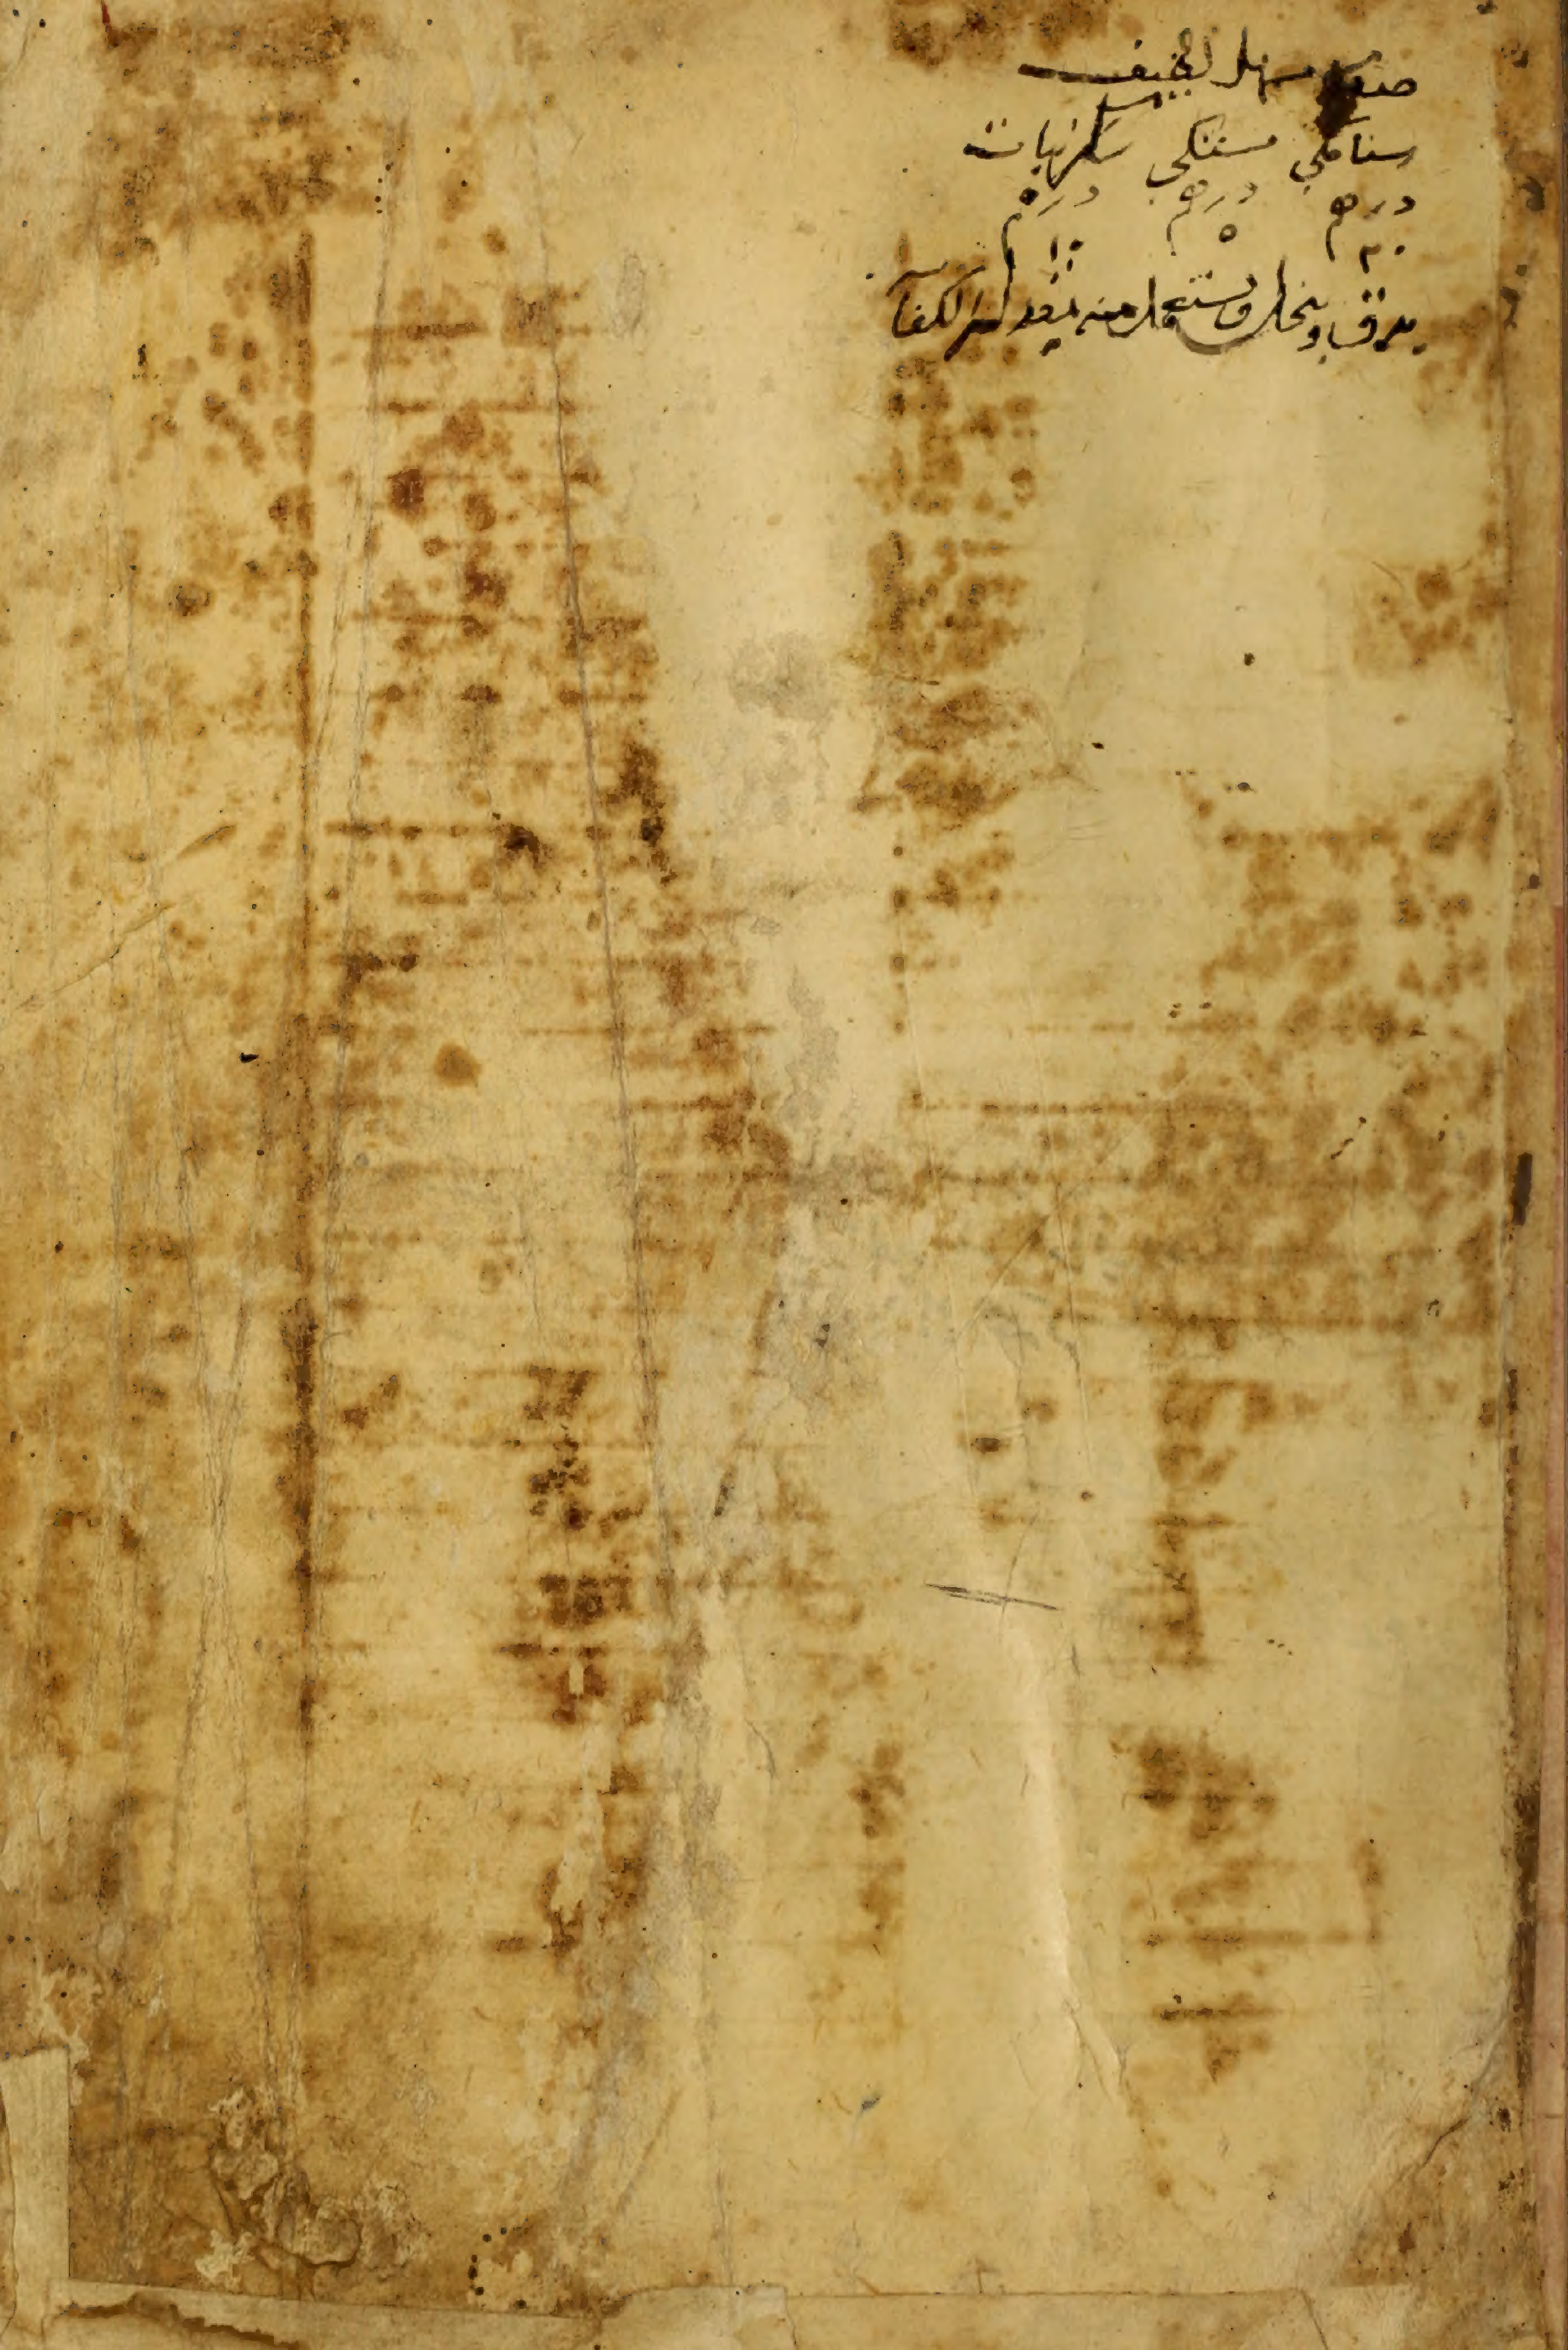 صفة مسهل لطيف
سنامكي مستكى سكر نبات
درهم درهم درهم
٢٠ ٥ ١٠
يدق وينخل ويستعمل منه بقدر الكفاية